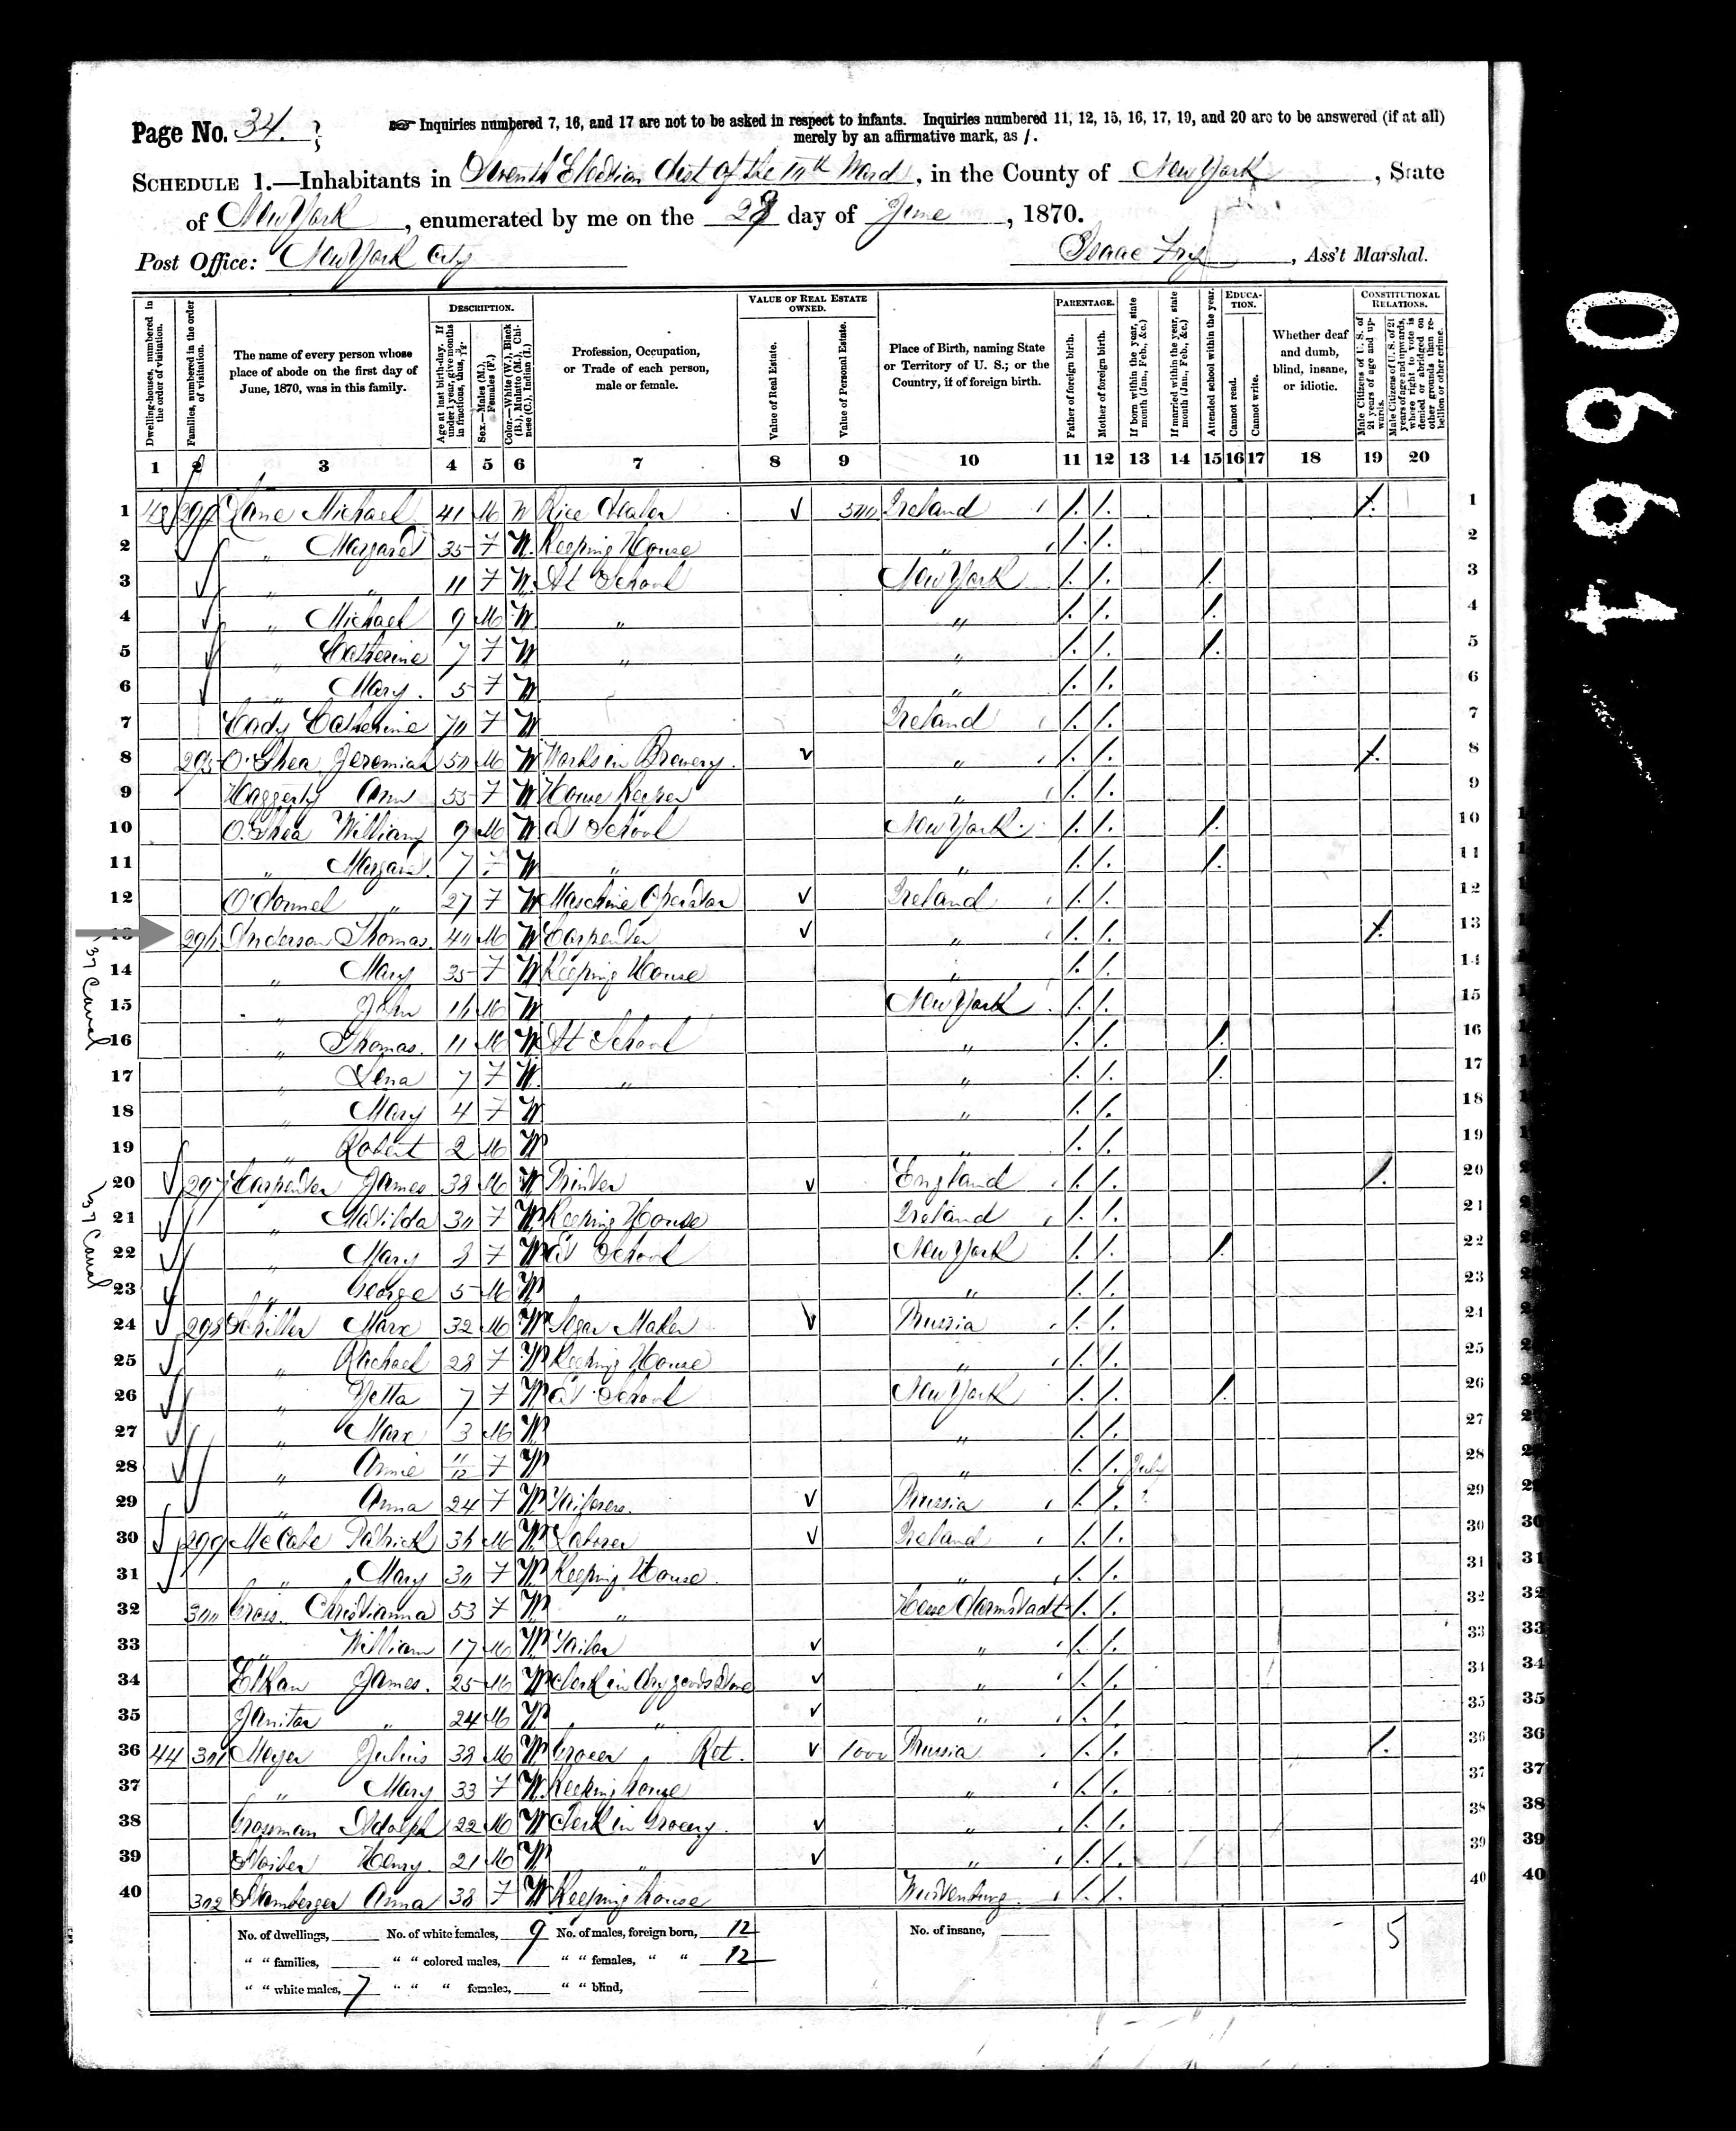 Page No. 34.
☞ Inquiries numbered 7, 16, and 17 are not to be asked in respect to infants. Inquiries numbered 11, 12, 15, 16, 17, 19, and 20 are to be answered (if at all)
merely by an affirmative mark, as /.
SCHEDULE 1.—Inhabitants in Seventh Election dist of the 10th Ward, in the County of New York, State
of New York, enumerated by me on the day of June, 1870.
Post Office: New York City
Isaac, Ass't Marshal.
Dwelling-houses, numbered in the order of visitation.
Families, numbered in the order of visitation.
The name of every person whose place of abode on the first day of June, 1870, was in this family.
DESCRIPTION.
Age at last birth-day. If under 1 year, give months in fractions, thus, 3/12.
Sex.—Males (M.), Females (F.)
Color.—White (W.), Black (B.), Mulatto (M.), Chinese (C.), Indian (I.)
Profession, Occupation, or Trade of each person, male or female.
VALUE OF REAL ESTATE OWNED.
Value of Real Estate.
Value of Personal Estate.
Place of Birth, naming State or Territory of U. S.; or the Country, if of foreign birth.
PARENTAGE.
Father of foreign birth.
Mother of foreign birth.
If born within the year, state month (Jan., Feb., &c.)
If married within the year, state month (Jan., Feb., &c.)
Attended school within the year.
EDUCATION.
Cannot read.
Cannot write.
Whether deaf and dumb, blind, insane, or idiotic.
CONSTITUTIONAL RELATIONS.
Male Citizens of U. S. of 21 years of age and upwards.
Male Citizens of U. S. of 21 years of age and upwards, whose right to vote is denied or abridged on other grounds than rebellion or other crime.
1 2 3 4 5 6 7 8 9 10 11 12 13 14 15 16 17 18 19 20
1 Michael 41 M W Dealer Ireland / / / 1
2 " Margaret 35 F W Keeping House " / / 2
3 " " 11 F W At School New York / / / 3
4 " Michael 9 M W " " / / / 4
5 " Catherine 7 F W " " / / / 5
6 " Mary. 5 F W " / / 6
7 Cady Catherine 70 F W Ireland / / 7
8 295 O'Shea Jeremiah 50 M W Works in Brewery. " / / / 8
9 Haggerty Ann 55 F W House Keeper " / / 9
10 O'Shea William 9 M W At School New York / / / 10
11 " Margaret. 7 F W " " / / / 11
12 O'donnel " 27 F W Maschine Operator Ireland / / 12
13 296 Anderson Thomas. 40 M W Carpenter " / / / 13
14 " Mary 35 F W Keeping House " / / 14
15 " John 16 M W New York / / 15
16 " Thomas. 11 M W At School " / / / 16
17 " Lena 7 F W " " / / / 17
18 " Mary 4 F W " / / 18
19 " Robert 2 M W " / / 19
20 297 Carpenter James 38 M W Printer England / / / 20
21 " Matilda 30 F W Keeping House Ireland / / 21
22 " Mary 8 F W At School New York / / / 22
23 " George 5 M W " / / 23
24 298 Schiller Marx 32 M W Segar Maker Prussia / / 24
25 " Rachael 28 F W Keeping House " / / 25
26 " Yetta 7 F W At School New York / / / 26
27 " Marx 3 M W " / / 27
28 " Annie 11/12 F W " / / July 28
29 " Anna 24 F W Tailoress. Prussia / / 29
30 299 McCabe Patrick 36 M W Laborer Ireland / / 30
31 " Mary 30 F W Keeping House. " / / 31
32 300 Gross. Christianna 53 F W " Hesse Darmstadt / / 32
33 " William 17 M W Tailor " / / 33
34 Elkan James. 25 M W Clerk in dry goods store " / / 34
35 Janitar " 24 M W " " / / 35
36 44 301 Meyer Julius 38 M W Grocer Ret. 1000 Prussia / / / 36
37 " Mary 33 F W Keeping house " / / 37
38 Grossman Adolph 22 M W Clerk in Grocery. " / / 38
39 Henry. 21 M W " " / / 39
40 302 Anna 38 F W Keeping house Wurtenburg / / 40
137 Canal
137 Canal
No. of dwellings, No. of white females, 9 No. of males, foreign born, 12 No. of insane, 5
" " families, " " colored males, " " females, " " 12
" " white males, 7 " " " females, " " blind,
0661